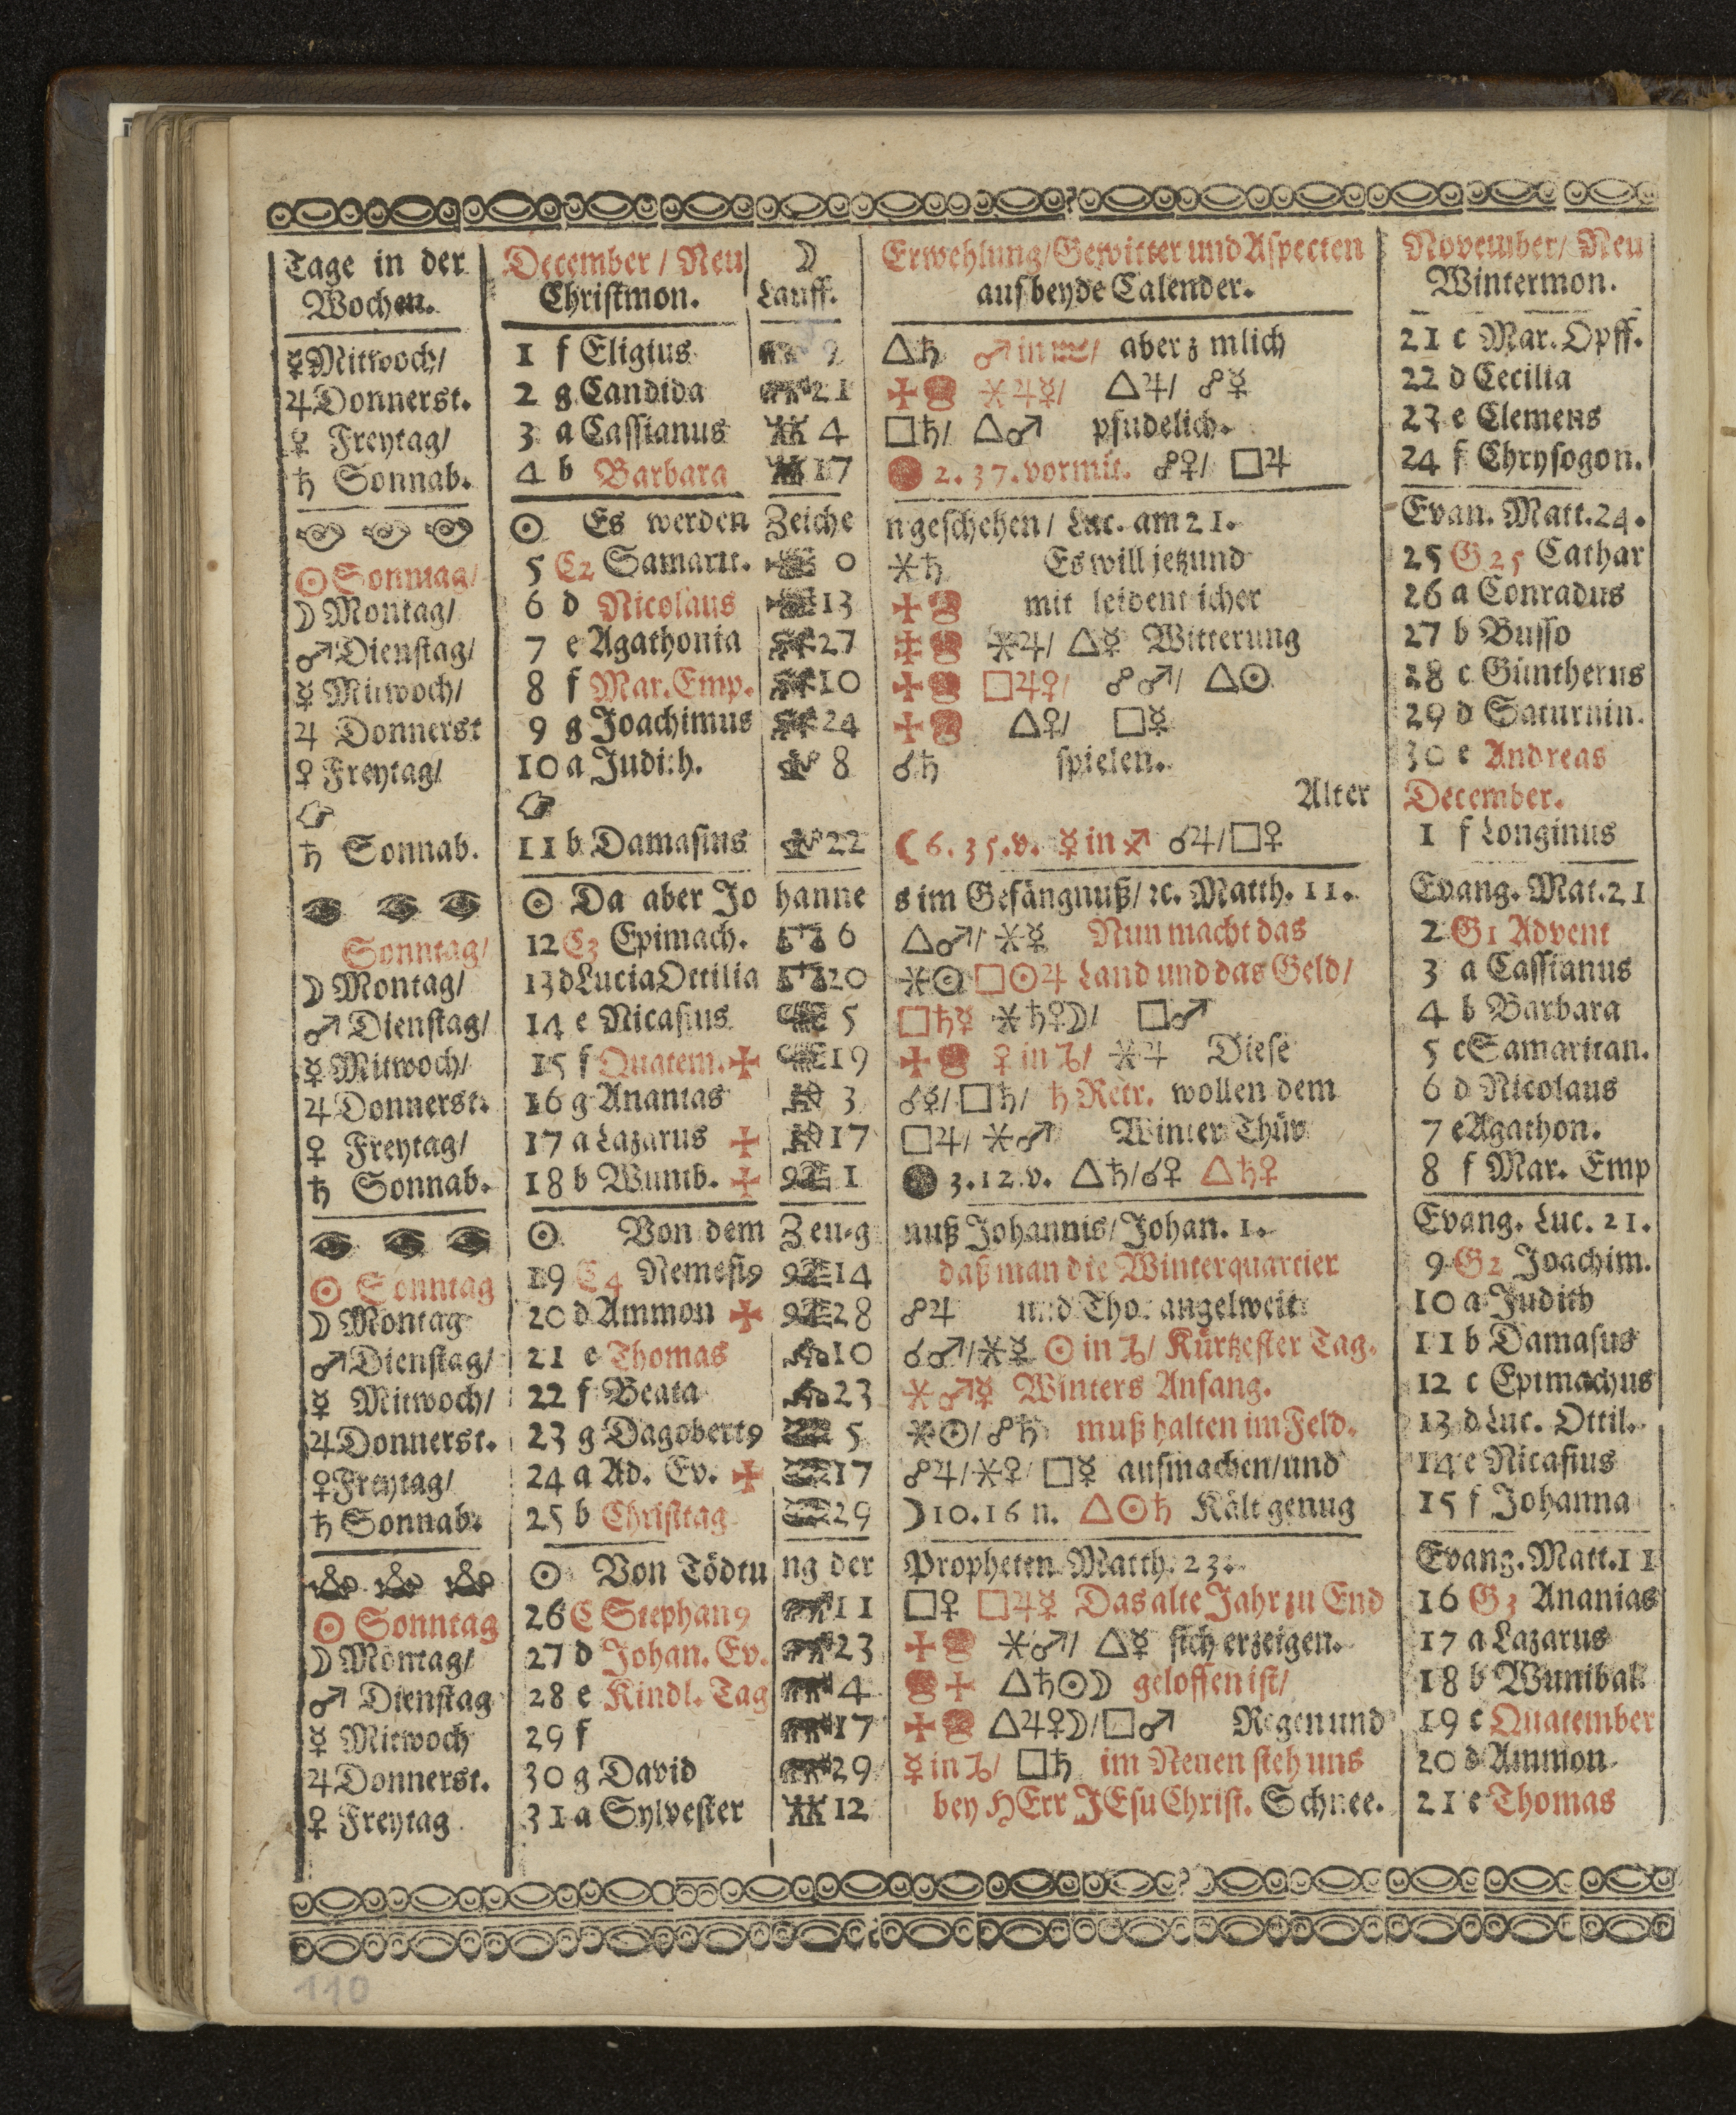 Tage in der Wochen. December / Neu Christmon. ☽ Lauff. Erwehlung/Gewitter und Aspecten auf beyde Calender. November/ Neu Wintermon.
☿ Mitwoch/ 1 f Eligius 9 △♄ ♂ in ♒/ aber z mlich 21 c Mar. Opff.
♃ Donnerst. 2 g Candida 21 ✠ ⚹♃☿/ △♃/ ☍☿ 22 d Cecilia
♀ Freytag/ 3 a Cassianus 4 □♄/ △♂ pfudelich. 23 e Clemens
♄ Sonnab. 4 b Barbara 17 2. 37. vormit. ☍♀/ □♃ 24 f Chrysogon.
☉ Es werden Zeiche n geschehen/ Luc. am 21. Evan. Matt. 24.
☉ Sonntag/ 5 C2 Samarit. 0 ⚹♄ Es will jetzund 25 G 25 Cathar
☽ Montag/ 6 d Nicolaus 13 ✠ mit leident icher 26 a Conradus
♂ Dienstag/ 7 e Agathonia 27 ✠ ⚹♃/ △☿ Witterung 27 b Busso
☿ Mitwoch/ 8 f Mar. Emp. 10 ✠ □♃♀/ ☍♂/ △☉ 28 c Güntherus
♃ Donnerst 9 g Joachimus 24 ✠ △♀/ □☿ 29 d Saturnin.
♀ Freytag/ 10 a Judith. 8 ☌♄ spielen. 30 e Andreas
☞ ☞ Alter December.
♄ Sonnab. 11 b Damasius 22 ☾ 6. 35. v. ☿ in ♐ ☌♃/□♀ 1 f Longinus
☉ Da aber Jo hanne s im Gefängnuß/ ꝛc. Matth. 11. Evang. Mat. 21
Sonntag/ 12 C3 Epimach. 6 △♂/ ⚹☿ Nun macht das 2 G1 Advent
☽ Montag/ 13 d Lucia Ottilia 20 ⚹☉ □☉♃ Land und das Geld/ 3 a Cassianus
♂ Dienstag/ 14 e Nicasius 5 □♄☿ ⚹♄♀☽/ □♂ 4 b Barbara
☿ Mitwoch/ 15 f Quatem. ✠ 19 ✠ ♀ in ♑/ ⚹♃ Diese 5 c Samaritan.
♃ Donnerst. 16 g Ananias 3 ☌☿/ □♄/ ♄ Retr. wollen dem 6 d Nicolaus
♀ Freytag/ 17 a Lazarus ✠ 17 □♃/ ⚹♂ Winter Thür 7 e Agathon.
♄ Sonnab. 18 b Wunib. ✠ 1 3. 12. v. △♄/☌♀ △♄♀ 8 f Mar. Emp
☉ Von dem Zeu-g nuß Johannis/ Johan. 1. Evang. Luc. 21.
☉ Sonntag 19 C4 Nemesi9 14 daß man die Winterquartier 9 G2 Joachim.
☽ Montag 20 d Ammon ✠ 28 ☍♃ und Tho. angelweit 10 a Judith
♂ Dienstag/ 21 e Thomas 10 ☌♂/⚹☿ ☉ in ♑/ Kürtzester Tag. 11 b Damasus
☿ Mitwoch/ 22 f Beata 23 ⚹♂☿ Winters Anfang. 12 c Epimachus
♃ Donnerst. 23 g Dagobert9 5 ⚹☉/ ☍♄ muß halten im Feld. 13 d Luc. Ottil.
♀ Freytag/ 24 a Ad. Ev. ✠ 17 ☍♃/⚹♀/ □☿ aufmachen/und 14 e Nicasius
♄ Sonnab. 25 b Christtag 29 ☽ 10. 16 n. △☉♄ Kält genug 15 f Johanna
☉ Von Tödtu ng der Propheten Matth. 23. Evang. Matt. 11
☉ Sonntag 26 C Stephan9 11 □♀ □♃☿ Das alte Jahr zu End 16 G3 Ananias
☽ Montag/ 27 d Johan. Ev. 23 ✠ ⚹♂/ △☿ sich erzeigen. 17 a Lazarus
♂ Dienstag 28 e Kindl. Tag 4 ✠ △♄☉☽ geloffen ist/ 18 b Wunibal
☿ Mitwoch 29 f 17 ✠ △♃♀☽/□♂ Regen und 19 c Quatember
♃ Donnerst. 30 g David 29 ☿ in ♑/ □♄ im Neuen steh uns 20 d Ammon
♀ Freytag 31 a Sylvester 12 bey HErr JEsu Christ. Schnee. 21 e Thomas
110